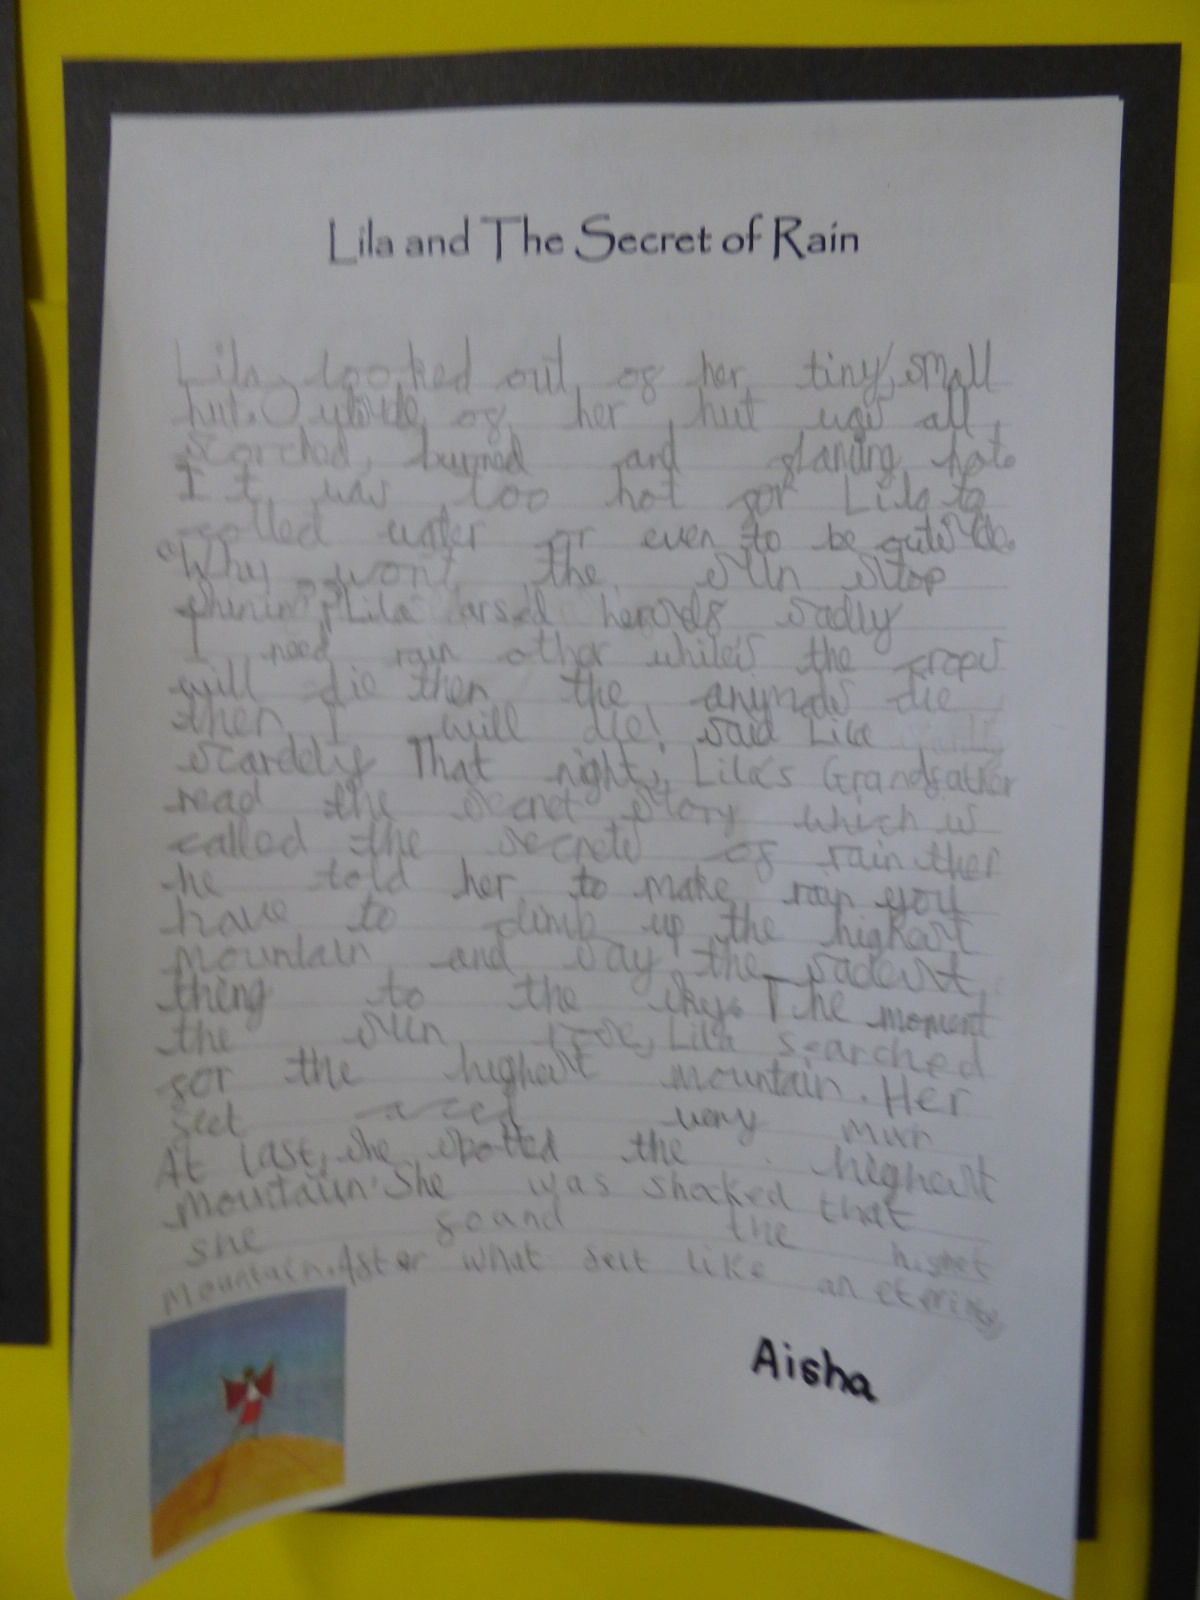 Lila and The Secret of Rain
Lila looked out of her tiny, small
hut. Outside of her hut was all
scorched, burned and hot.
It was too hot for Lila to
water or even to be outside.
"Why wont the sun stop
Lila herself sadly
I need rain other the crops
will die then the animals die
then I will die! said Lila
scardely That night, Lila's Grandfather
read the secret story which is
called the secrets of rain then
he told her to make rain you
have to climb up the highest
mountain and say the sadest
thing to the sky. The moment
the sun rose, Lila searched
for the highest mountain. Her
feet very
At last, she spotted the highest
mountain. She was shocked that
she found the
mountain. After what felt like an
Aisha